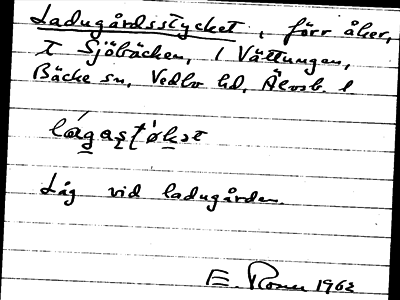 Ladugårdsstycket, förr åker,
T Sjöbäcken, 1 Vättungen,
Bäcke sn, Vedbo hd, Älvsb. l
Låg vid ladugården.
E. Rosen 1962